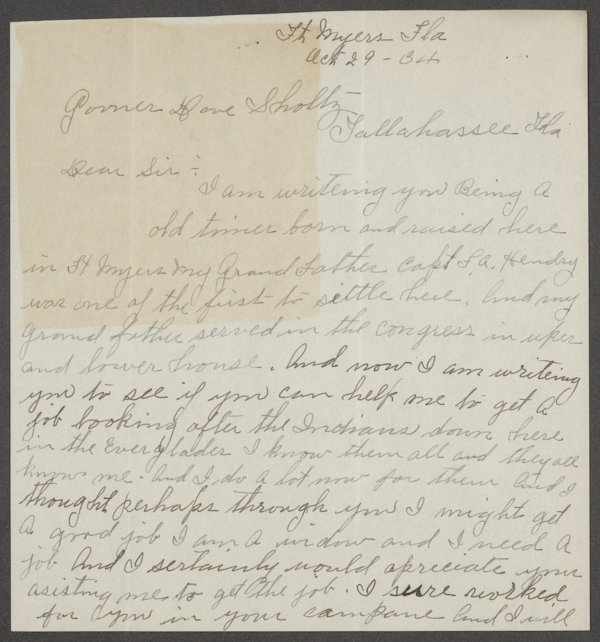 Ft Myers Fla
Oct 29 - 34
Govner Dave Sholtz
Tallahassee Fla
Dear Sir :
I am writeing you Being A
old timer born and raised here
in Ft Myers My Grand father capt F.A. Hendry
was one of the first to settle here. And my
grand father served in the congress in uper
and lower house. And now I am writeing
you to see if you can help me to get A
job looking after the Indians down here
in the Everglades I know them all and they all
know me. And I do A lot now for them And I
thought perhaps through you I might get
A good job I am A widow and I need A
job And I sertainly would apreciate your
asisting me to get the job. I sure worked
for you in your campane And I will